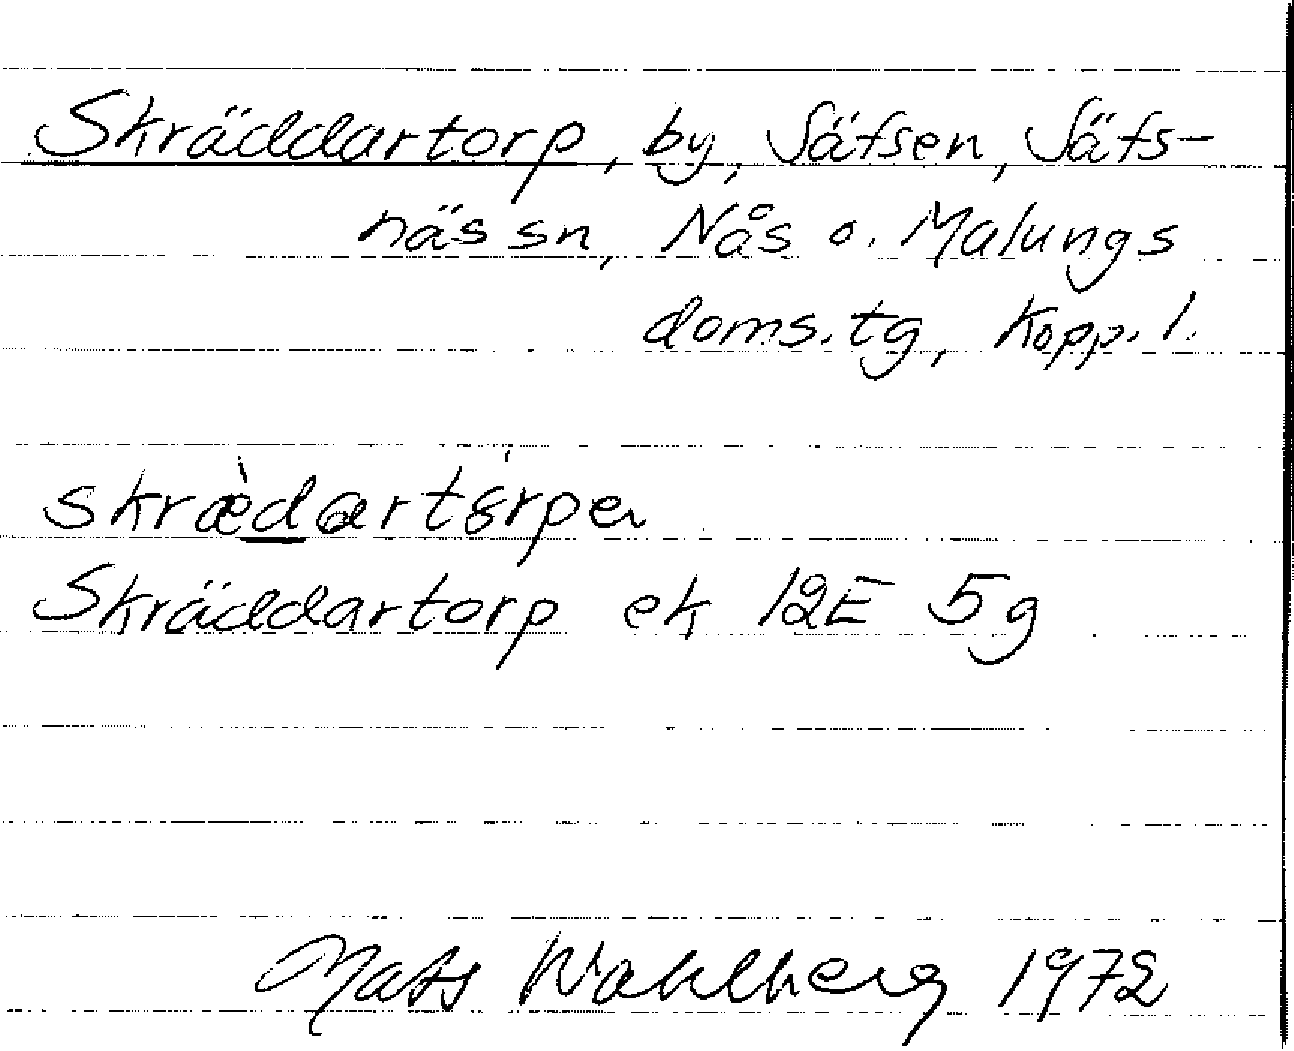 Skräddartorp, by, Säfsen, Säfs-
näs sn, Nås o. Malungs
doms.tg, Kopp. l.
Skräddartorp ek 12E 5g
Mats Wahlberg 1972